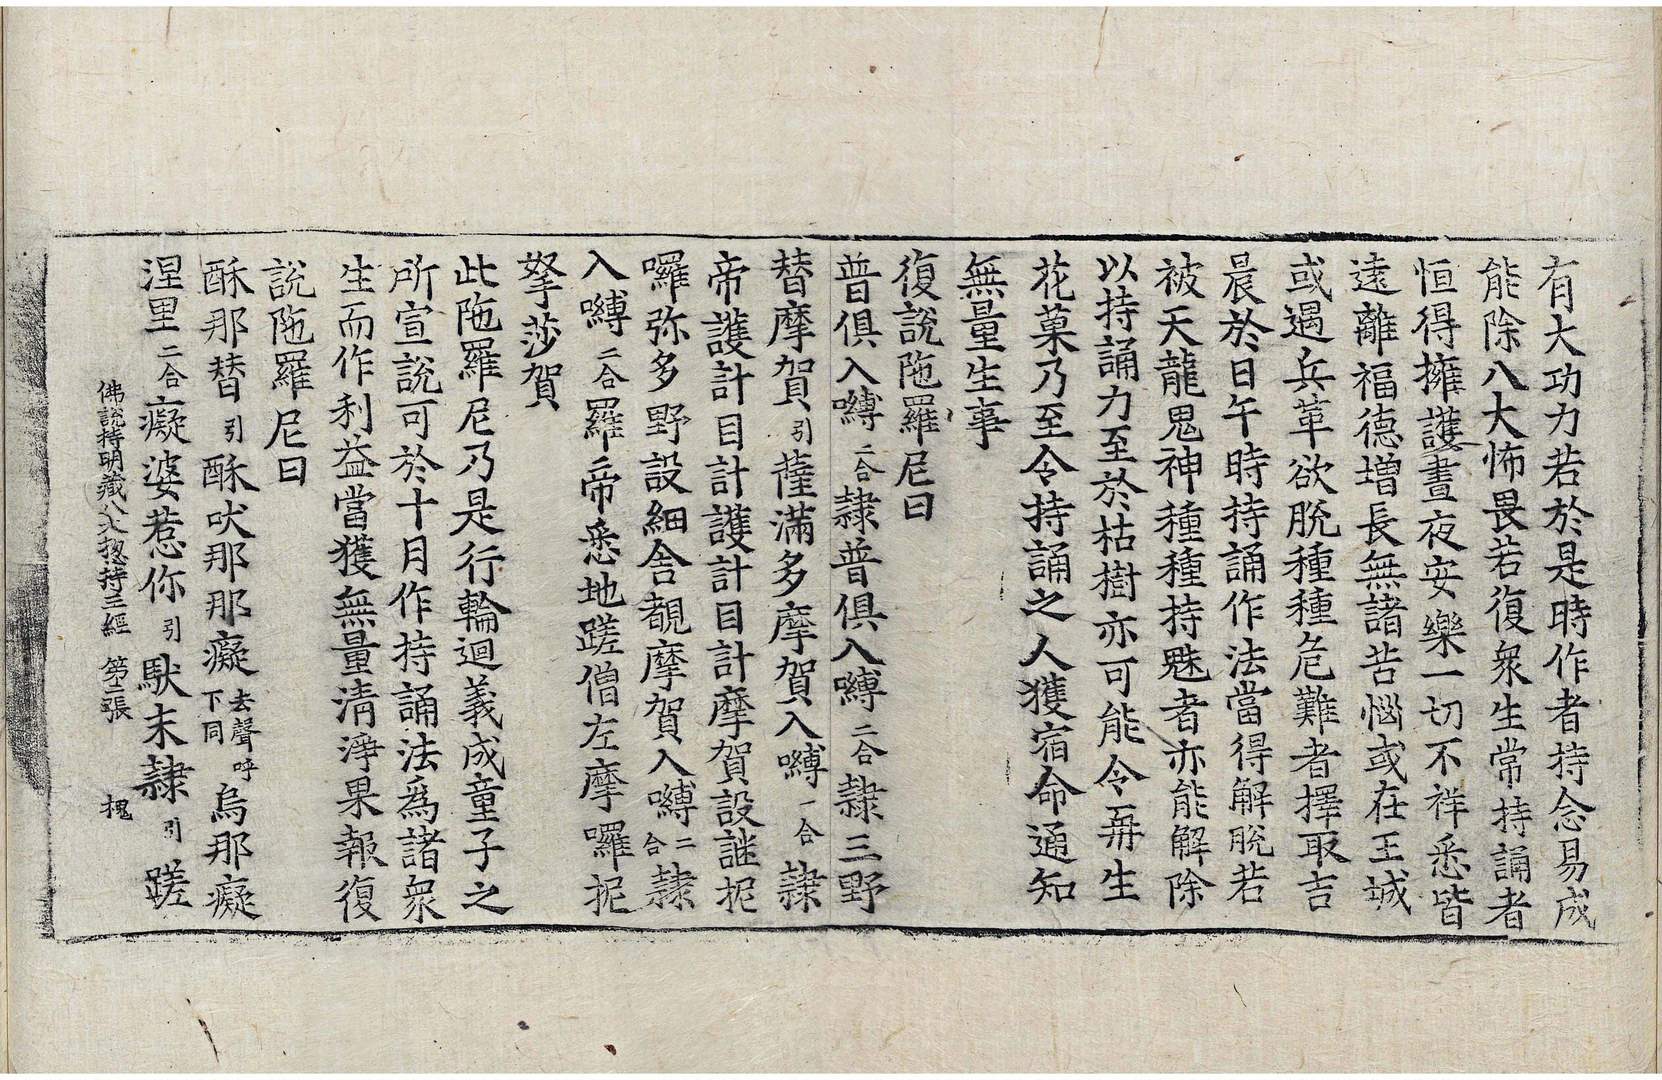 有大功力若於是時作者持念易成
能除八大怖畏若復衆生常持誦者
恒得擁護晝夜安樂一切不祥悉皆
遠離福德增長無諸苦惱或在王城
或遇兵革欲脫種種危難者擇取吉
晨於日午時持誦作法當得解脫若
被天龍鬼神種種持魅者亦能解除
以持誦力至於枯樹亦可能令再生
花菓乃至令持誦之人獲宿命通知
無量生事
復說陁羅尼曰
普俱入嚩二合隷普俱入嚩二合隷三野
替摩賀引薩滿多摩賀入嚩一合隷
帝護計目計護計目計摩賀設謎抳
囉弥多野設細舎覩摩賀入嚩二合隷
入嚩二合羅帝悉地蹉僧左摩囉抳
拏莎賀
此陁羅尼乃是行輪迴義成童子之
所宣說可於十月作持誦法爲諸衆
生而作利益當獲無量清淨果報復
說陁羅尼曰
酥那替引酥吠那那癡去聲呼下同烏那癡
涅里二合癡婆惹你引馱末隷引蹉
佛說持明藏八大惣持王經 第二張 槐